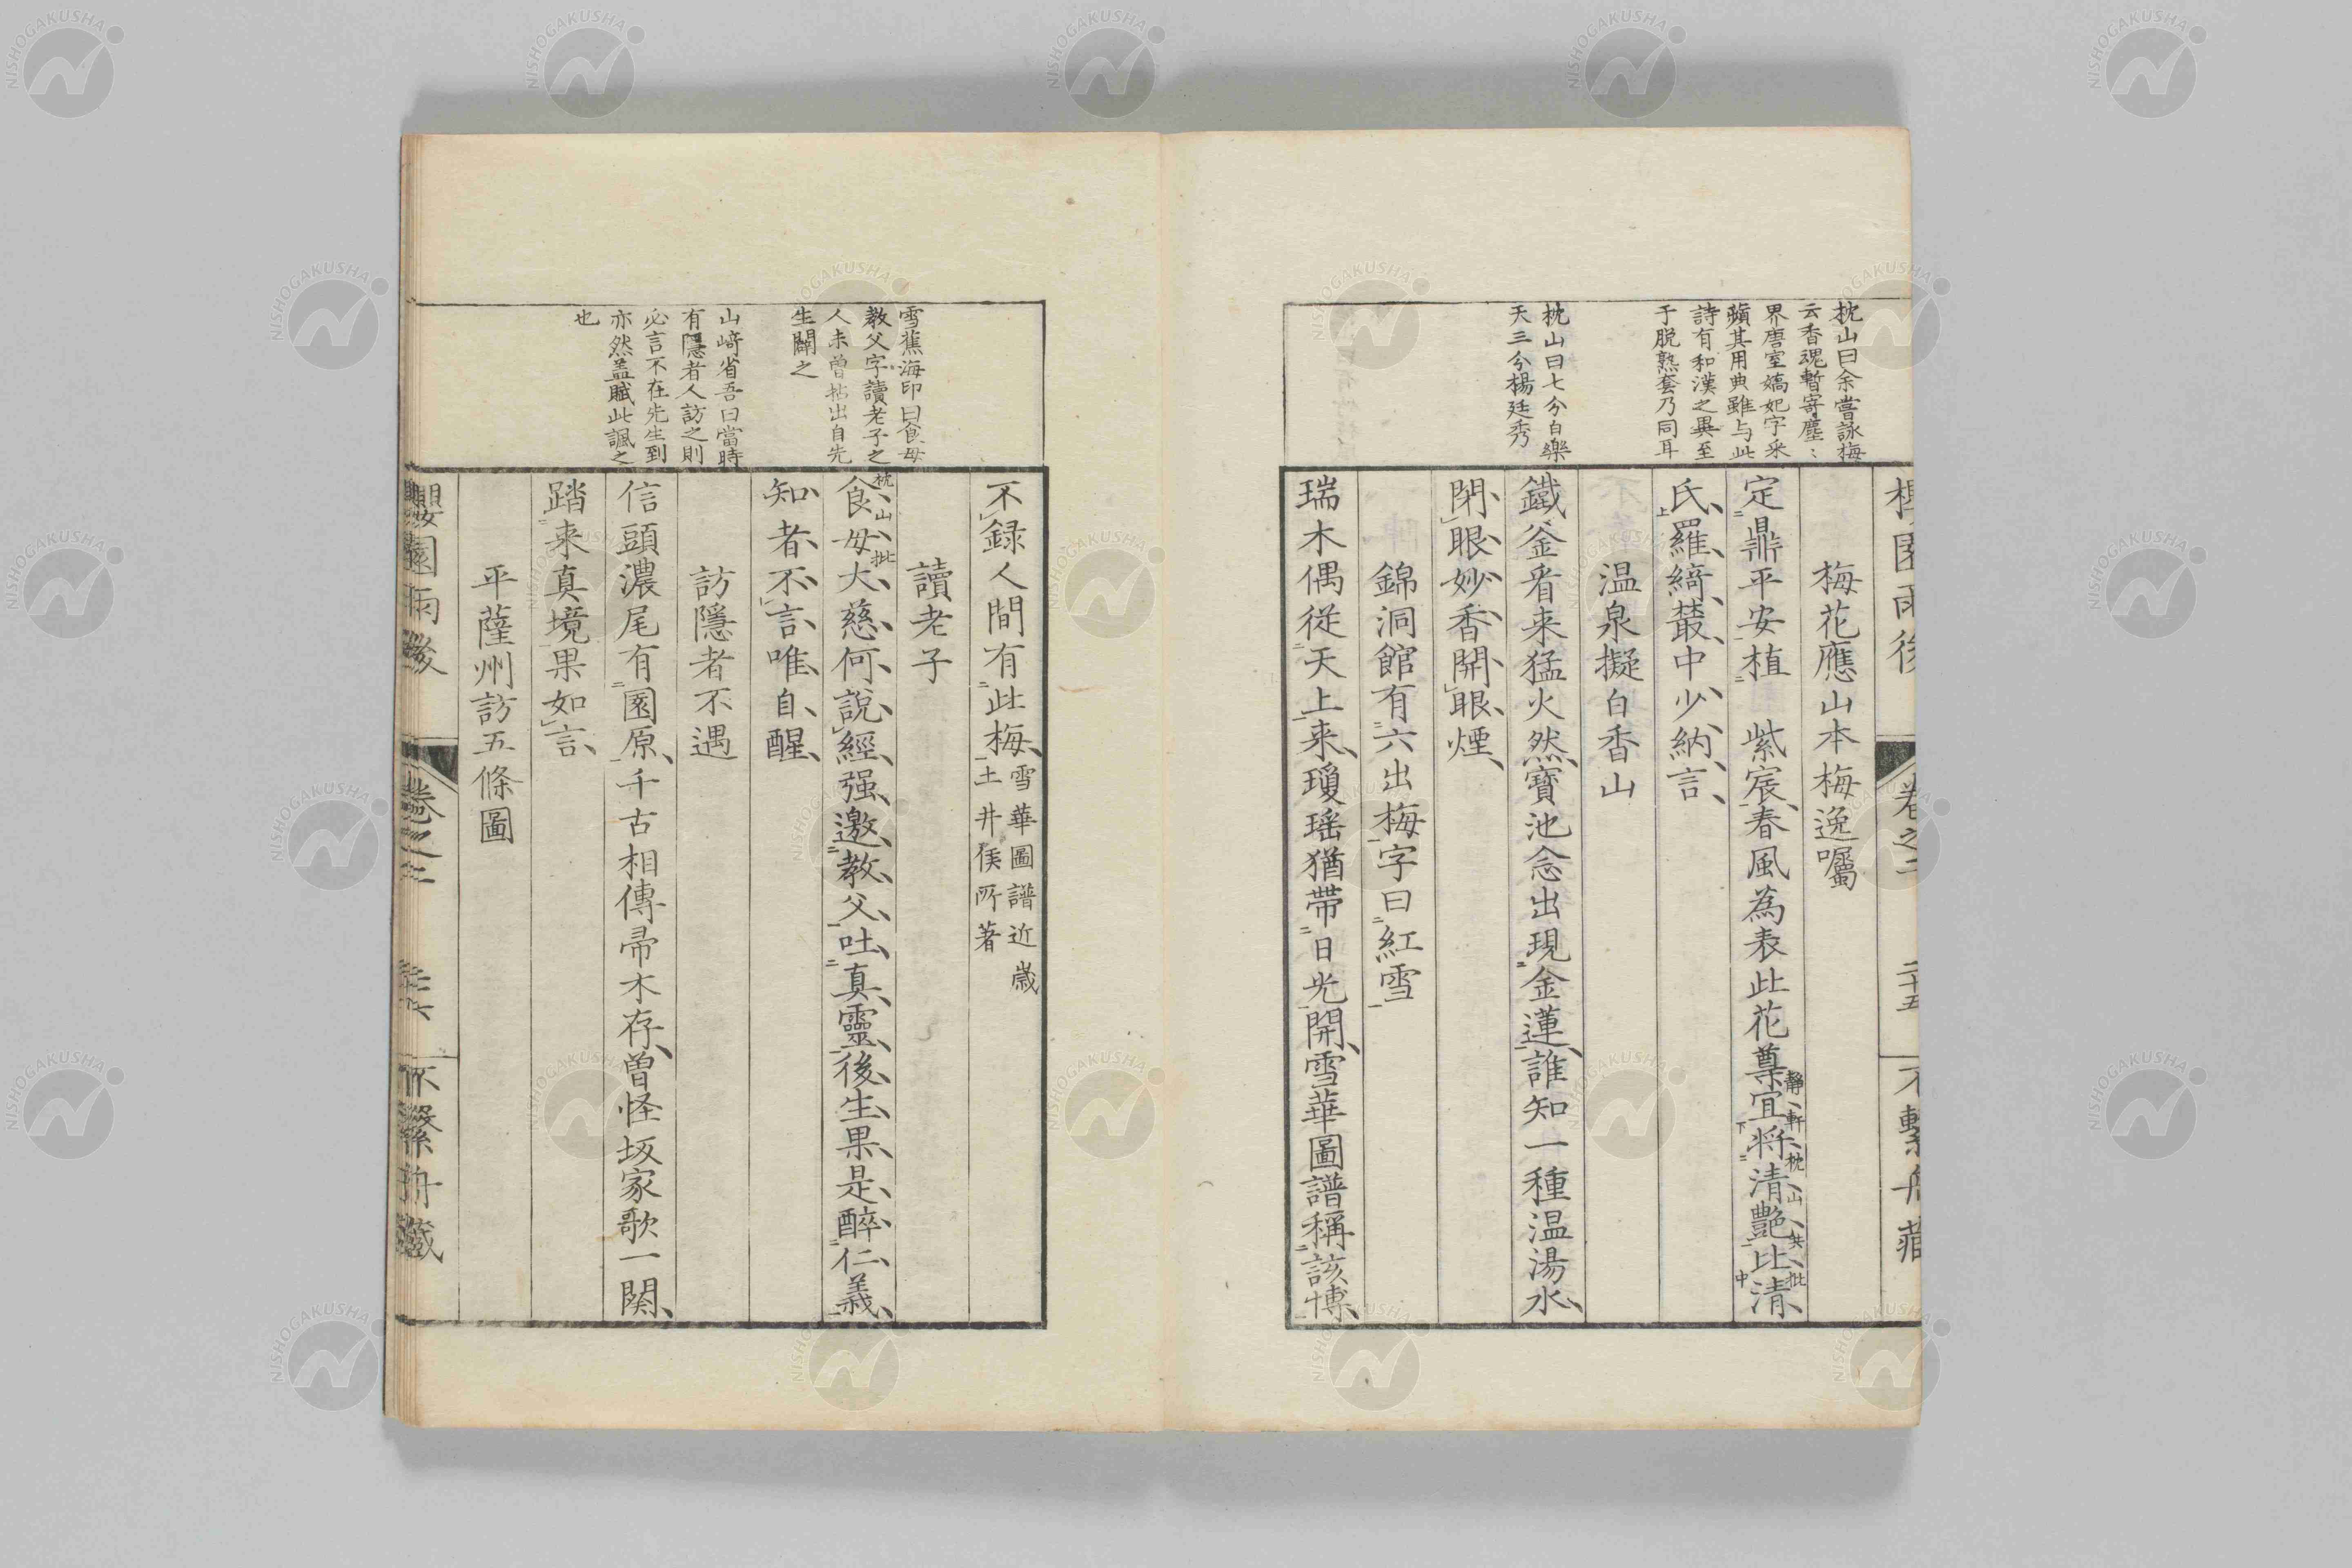 枕山曰余嘗詠梅
云香魂暫寄塵〻
界唐室嬌妃字采
蘋其用典雖与此
詩有和漢之異至
于脱熟套乃同耳
枕山曰七分白樂
天三分楊廷秀
梅花應山本梅逸囑
定鼎平安植紫宸春風為表此花尊宜將清艷比清
靜軒枕山共批
氏羅綺叢中少納言
温泉擬白香山
鐵釜看来猛火然寶池念出現金蓮誰知一種温湯水
閉眼妙香開眼煙
錦洞館有六出梅字曰紅雪
瑞木偶從天上来瓊瑶猶帶日光開雪華圖譜稱該博
雪蕉海印曰食母
教父字讀老子之
人未曽拈出自先
生闢之
山﨑省吾曰當時
有隱者人訪之則
必言不在先生到
亦然盖賦此諷之
也
不録人間有此梅
雪華圖譜近歳
土井侯所著
讀老子
枕山批
食母大慈何說經强邀教父吐真靈後生果是醉仁義
知者不言唯自醒
訪隱者不遇
信頭濃尾有園原千古相傳帚木存曽怪坂家歌一闋
踏来真境果如言
平薩州訪五條圖
櫻園雨後
卷之二
不繫舟藏
NISHOGAKUSHA